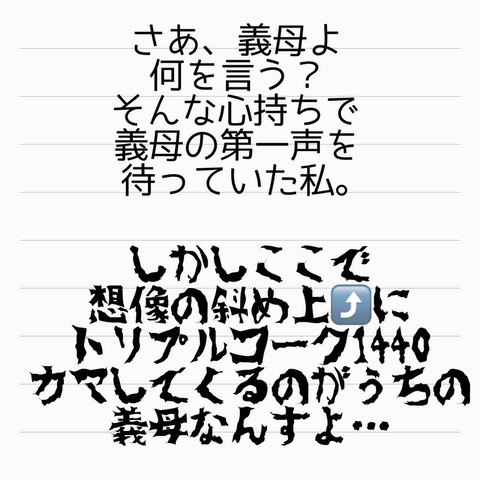 さあ、義母よ
何を言う？
そんな心持ちで
義母の第一声を
待っていた私。
しかしここで
想像の斜め上⤴️に
トリプルコーク1440
カマしてくるのがうちの
義母なんすよ…